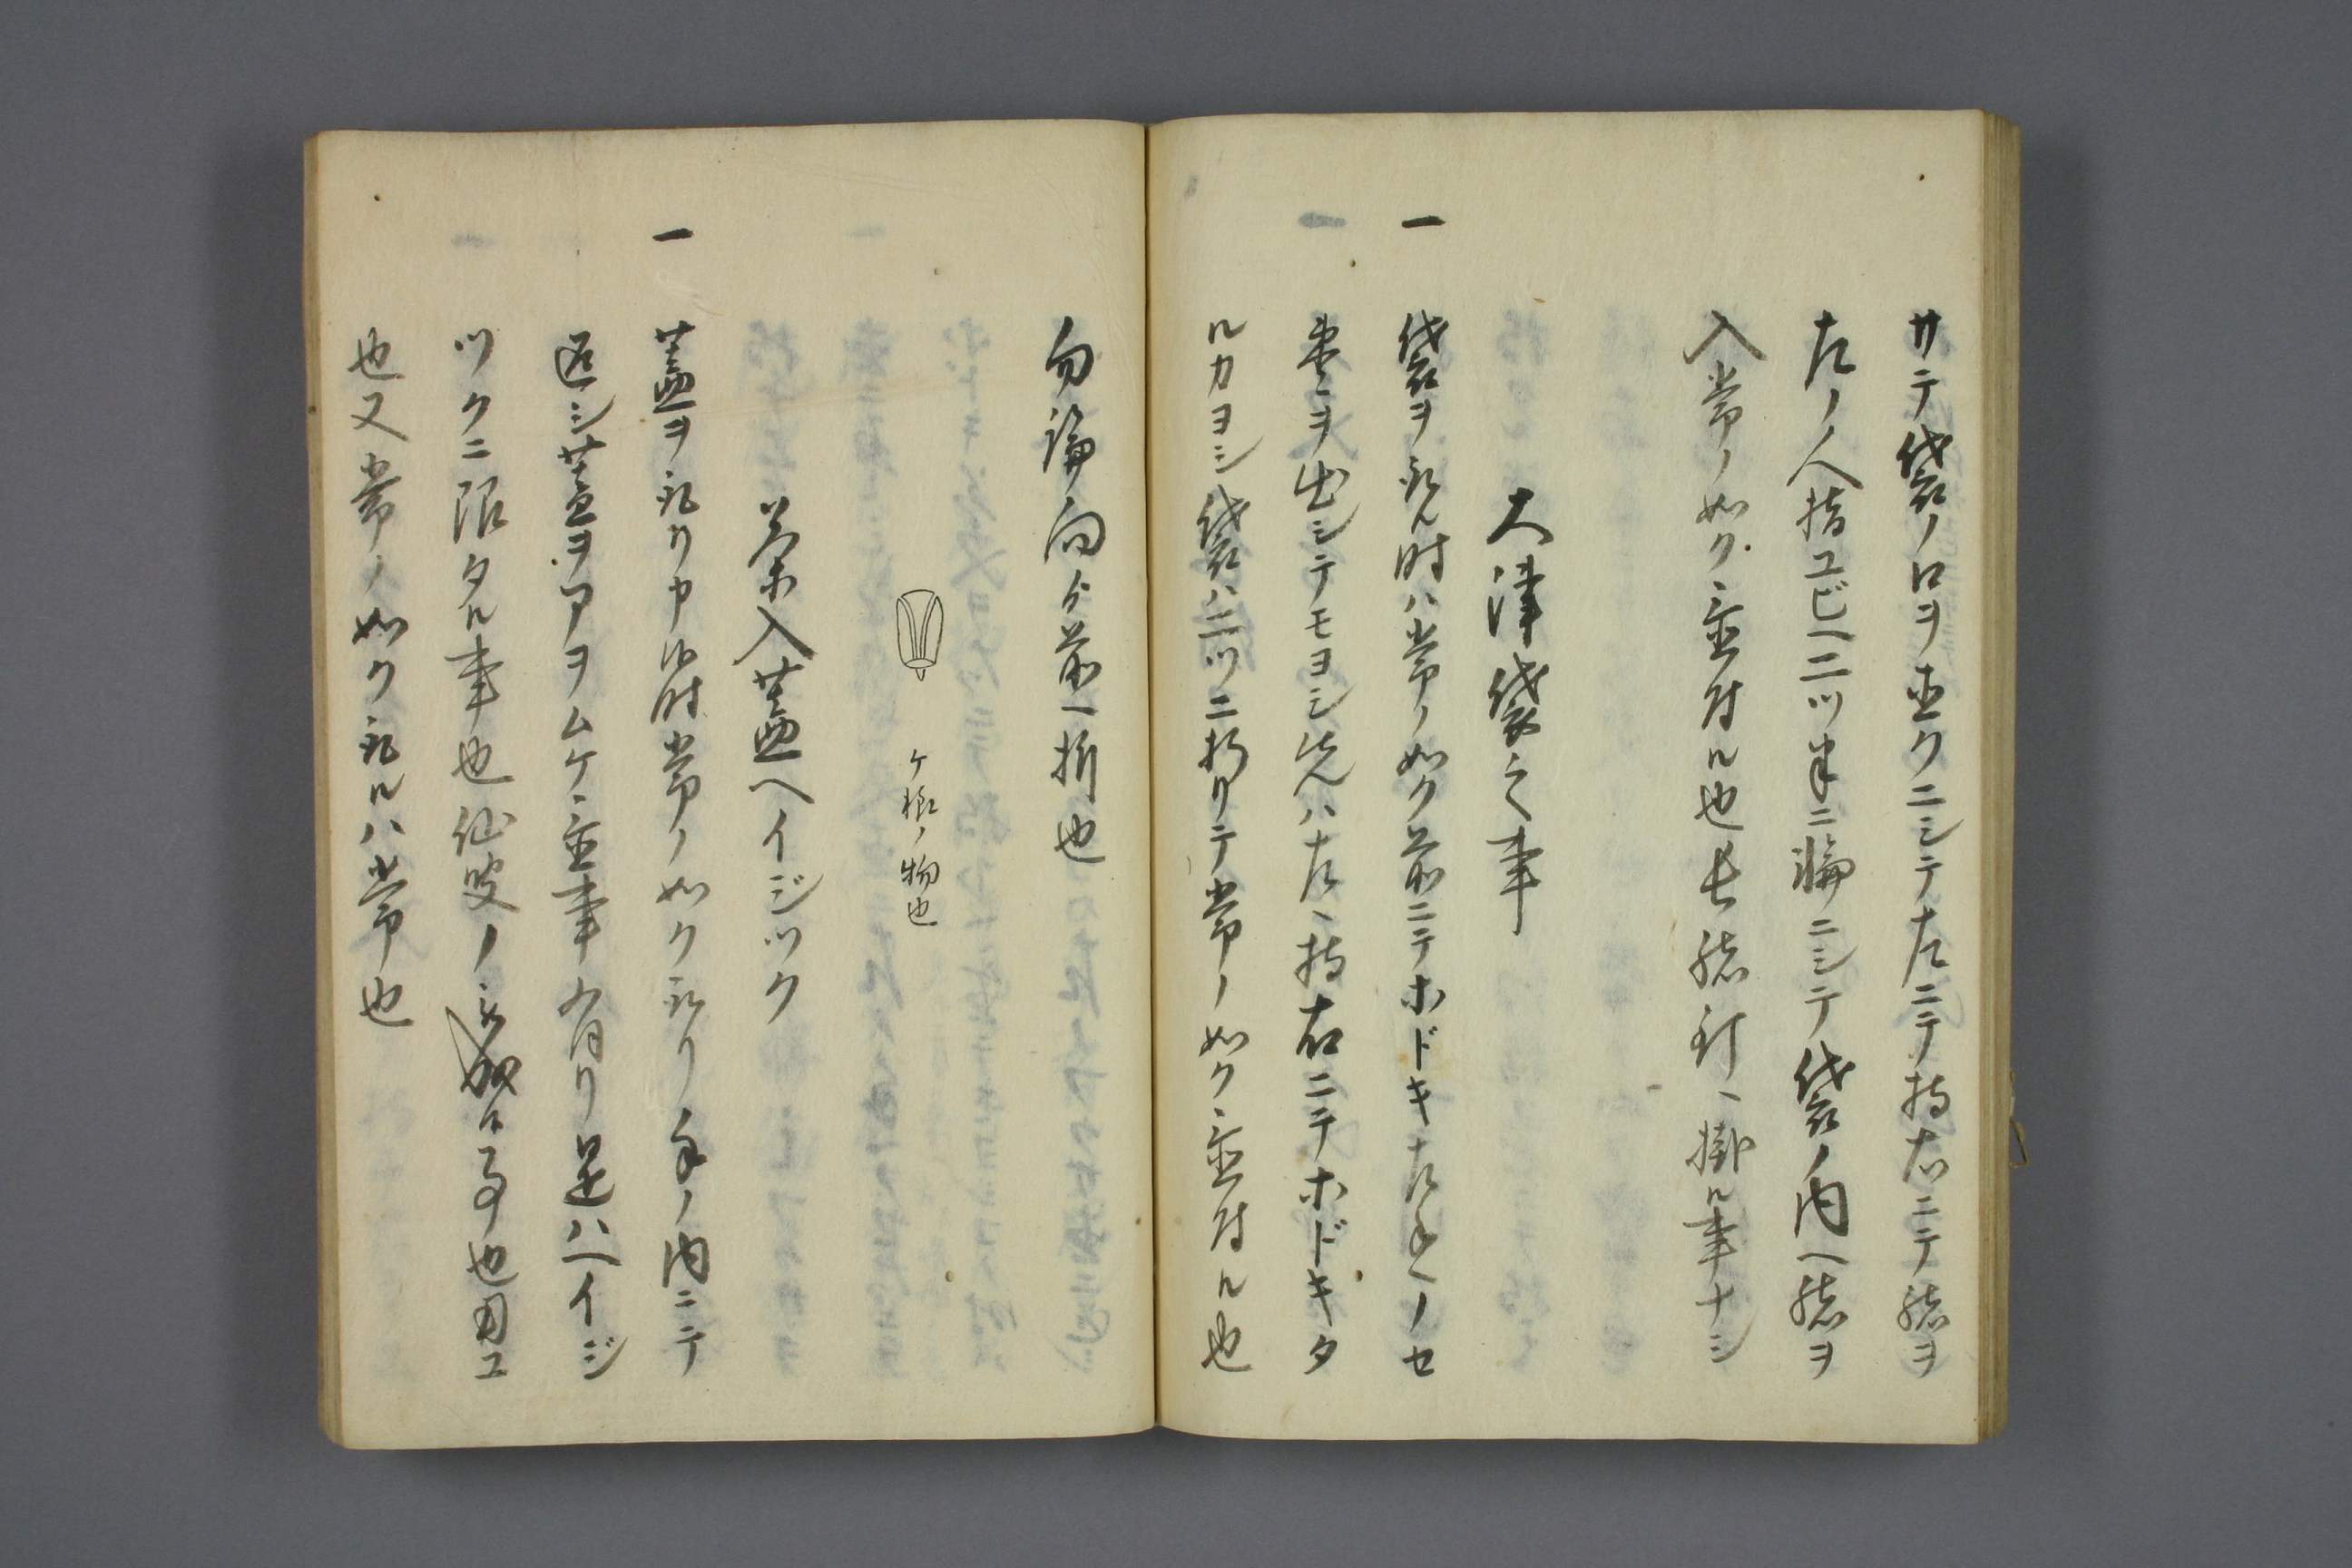 サテ袋ノ口ヲ直クニシテ左ニテ持右ニテ緒ヲ
左ノ人指ユビヘ二ツ半ニ輪ニシテ袋ノ内ヘ緒ヲ
入常ノ如ク置付ル也長緒釘ヘ掛ル事ナシ
大津袋之事
一 袋ヲ取ル時ハ常ノ如ク前ニテホドキ左手ノセ
棗ヲ出シテモヨシ然ハ左ヘ持右ニテホドキタ
ルカヨシ袋ハ二ツニ折リテ常ノ如ク置付ル也
勿論向ケ前ヘ折也
ケ様ノ物也
茶入蓋ヘイジツク
一 蓋ヲ取リ申ス時常ノ如ク取リ手ノ内ニテ
返シ蓋ヲアヲムケ置事有リ是ハヘイジ
ツクニ限タル事也仙叟ノ被成事也因ユ
也又常ノ如ク取ルハ常也